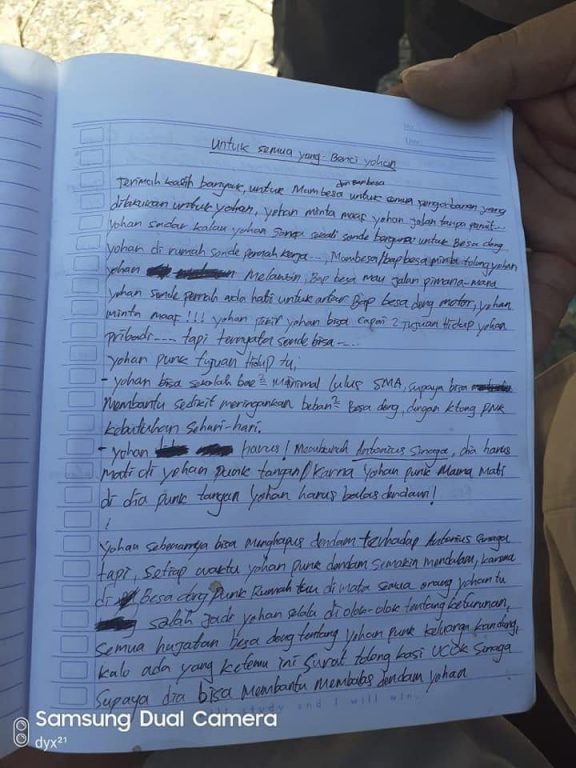 Untuk semua yang Benci yohan
Terimah kasih banyak, untuk Mambesa dan bapbesa untuk semua pengorbanan yang
dilakukan untuk yohan, yohan minta maaf yohan jalan tanpa pamit...
yohan sadar kalau yohan sonde berguna untuk Besa dong
yohan di rumah sonde pernah kerja..., Mambesa/bap besa minta tolong yohan
yohan Melawan, Bap besa mau jalan pimana-mana
yohan sonde pernah ada hati untuk antar Bap besa deng motor, yohan
minta maaf !!! yohan pikir yohan bisa capai 2 tujuan hidup yohan
pribadi---- tapi ternyata sonde bisa-...
yohan punk tujuan hidup tu;
- yohan bisa sekolah bae² minimal Lulus SMA, supaya bisa
Membantu sedikit meringankan beban² Besa dong, dengan ktong punk
kebutuhan sehari-hari.
- yohan harus! Membunuh Antonius Sinaga, dia harus
mati di yohan punk tangan/ karna yohan punk Mama mati
di dia punk tangan yohan harus balas dendam!
!
yohan sebenarnya bisa menghapus dendam terhadap Antonius Sinaga
tapi, setiap waktu yohan punk dendam semakin mendalam, karena
di Besa dong punk Rumah tuu di mata semua orang yohan tu
salah jadi yohan selalu di olok-olok tentang keturunan,
semua hujatan besa dong tentang yohan punk keluarga kandung,
kalo ada yang ketemu ini surat tolong kasi Ucok Sinaga
Supaya dia bisa Membantu membalas dendam yohan
study and I will win.
Samsung Dual Camera
dyx²¹